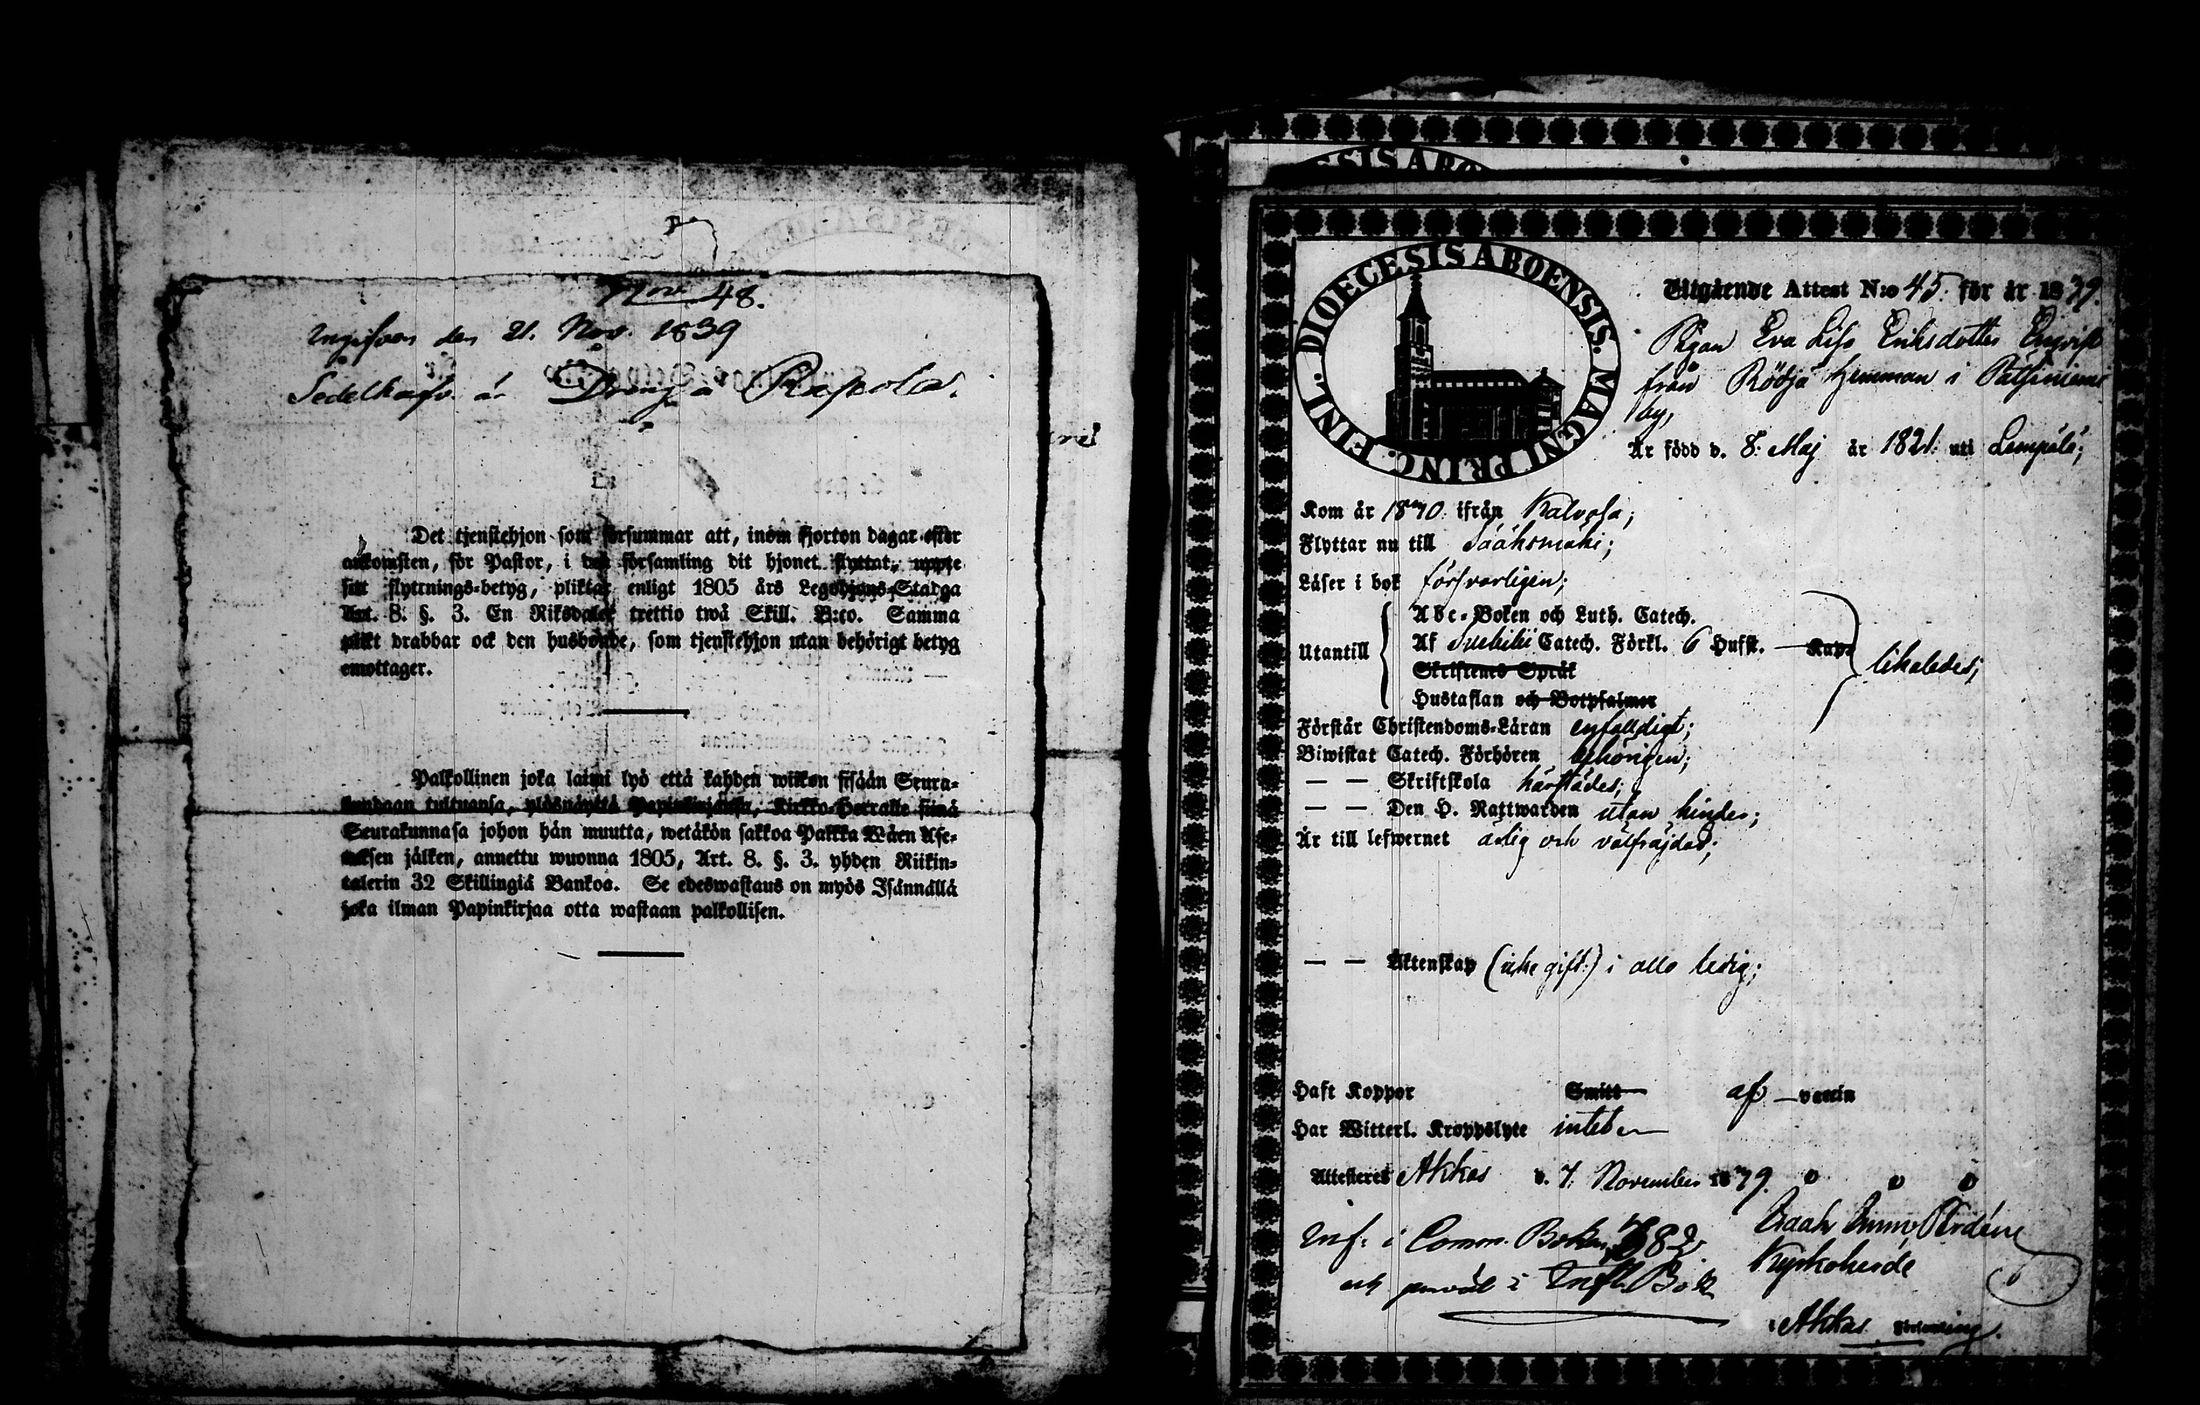 Nov 48.
Ingifven den 21. Nov. 1839
Sedelhafv. är Dräng å Rapola.
Det tjenstehjon som försummar att, inom fjorton dagar efter
ankomsten, för Pastor, i den församling dit hjonet flyttat, uppte
sitt flyttnings-betyg, pliktar enligt 1805 års Legohjons-Stadga
Art. 8. §. 3. En Riksdaler trettio twå Skill. B:co. Samma
plikt drabbar ock den husbonde, som tjenstehjon utan behörigt betyg
emottager.
Palkollinen joka laimi lyö että kahden wiikon sisään Seura-
kundaan tultuansa, ylösnäyttä Papinkirjansa, Kirkko-Herralle siinä
Seurakunnasa johon hän muutta, wetäkön sakkoa Palkka Wäen Ase-
tuksen jälken, annettu wuonna 1805, Art. 8. §. 3. yhden Riikin-
talerin 32 Skillingiä Bankoa. Se edeswastaus on myös Isännällä
joka ilman Papinkirjaa otta wastaan palkollisen.
DIOECESIS ABO
DIOECESIS ABOENSIS. MAGNI PRINC. FINL.
Utgående Attest N:o 45. för år 1839.
Pigan Eva Lisa Eriksdotter Enqvist
från Röösä hemman i
by,
Är född d. 8. Maj år 1821. uti Lempälä;
Kom år 1840. ifrån Kalvola;
Flyttar nu till Sääksmäki;
Läser i bok försvarligen;
Abc-Boken och Luth. Catech.
Utantill Af Svebilii Catech. Förkl. 6 Hufst. — Kap. likaledes;
Skriftenes Språk
Hustaflan och Botpsalmer
Förstår Christendoms-Läran enfaldigt;
Biwistat Catech. Förhören behörigen;
— — Skriftskola härstädes;
— — Den H. Nattwarden utan hinder;
Är till lefwernet ärlig och välfräjdad;
— — Äktenskap (icke gift) i allo ledig;
Haft Koppor Smitt af — vaccin
Har Witterl. Kroppslyte intet
Attesteras Akkas d. 7. November 1839.
Inf. i Comm. Boken 382 Isaak Kyrkoherde
och i Infl. Bok
i Akkas Församling.